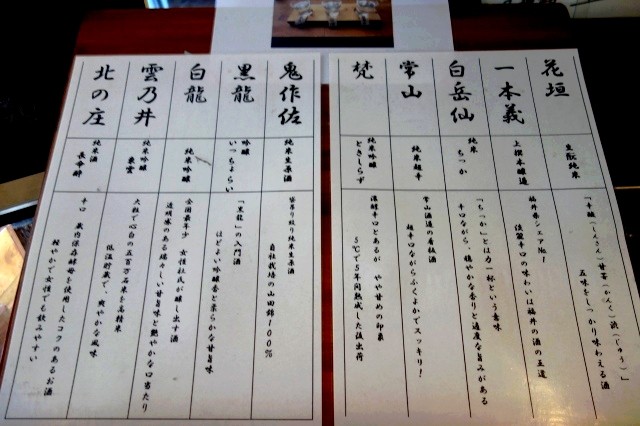 花垣
生酛純米
「辛酸（しんさん）甘苦（かんく）渋（じゅう）」
五味をしっかり味わえる酒
一本義
上撰本醸造
福井県シェア№1
淡麗辛口の味わいは福井の酒の王道
白岳仙
純米
ちっか
「ちっか」とは力一杯という意味
辛口ながら、穏やかな香りと適度な旨みがある
常山
純米超辛
常山酒造の看板酒
超辛口ながらふくよかでスッキリ！
梵
純米吟醸
ときしらず
濃醇辛口とあるが やや甘めの印象
5℃で5年間熟成した後出荷
鬼作佐
純米生原酒
搾り純米生原酒
自社栽培の山田錦100%
黒龍
吟醸
いっちょらい
「黒龍」の入門酒
ほどよい吟醸香と柔らかな甘旨味
白龍
純米吟醸
全国最年少 女性杜氏が醸し出す酒
透明感のある瑞々しい甘旨味と艶やかな口当たり
雲乃井
純米吟醸
東雲
大粒で心白の五百万石米を高精米
低温貯蔵で、爽やかな風味
北の庄
純米酒
辛口 蔵内保存酵母を使用したコクのあるお酒
軽やかで女性でも飲みやすい